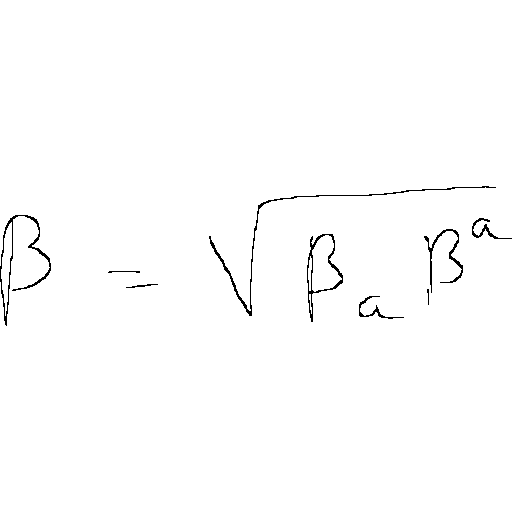 β = √(β_a β^a)